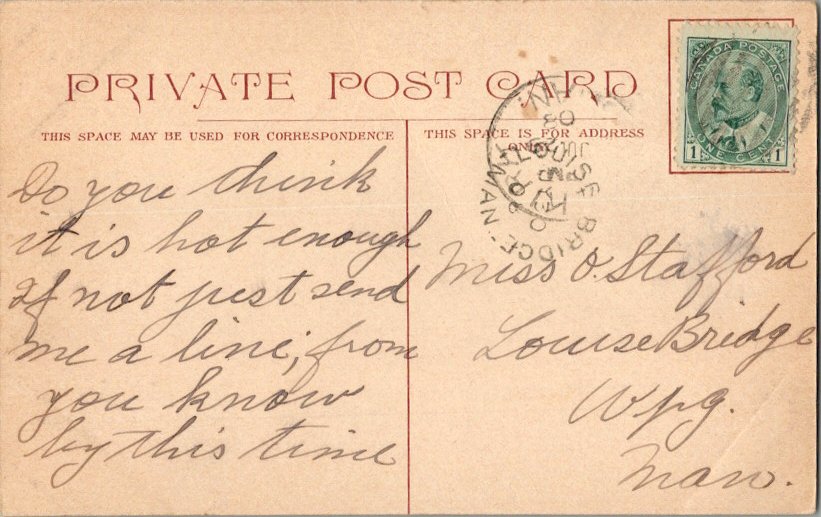 PRIVATE POST CARD
THIS SPACE MAY BE USED FOR CORRESPONDENCE
THIS SPACE IS FOR ADDRESS
ONLY
CANADA POSTAGE
1 ONE CENT 1
LOUISE BRIDGE MAN
Do you think
it is hot enough
If not just send
me a line, from
you know
by this time
Miss O. Stafford
Louise Bridge
Wpg.
Man.